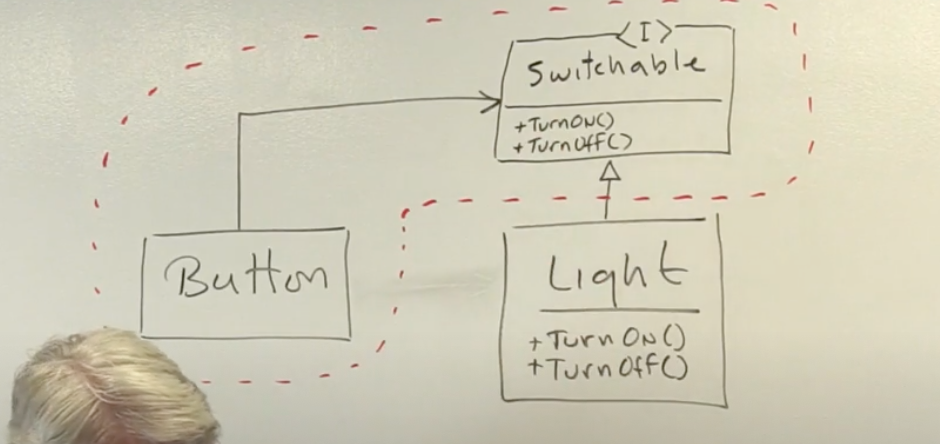 <I>
Switchable
+TurnON()
+TurnOff()
Button
Light
+TurnON()
+TurnOff()